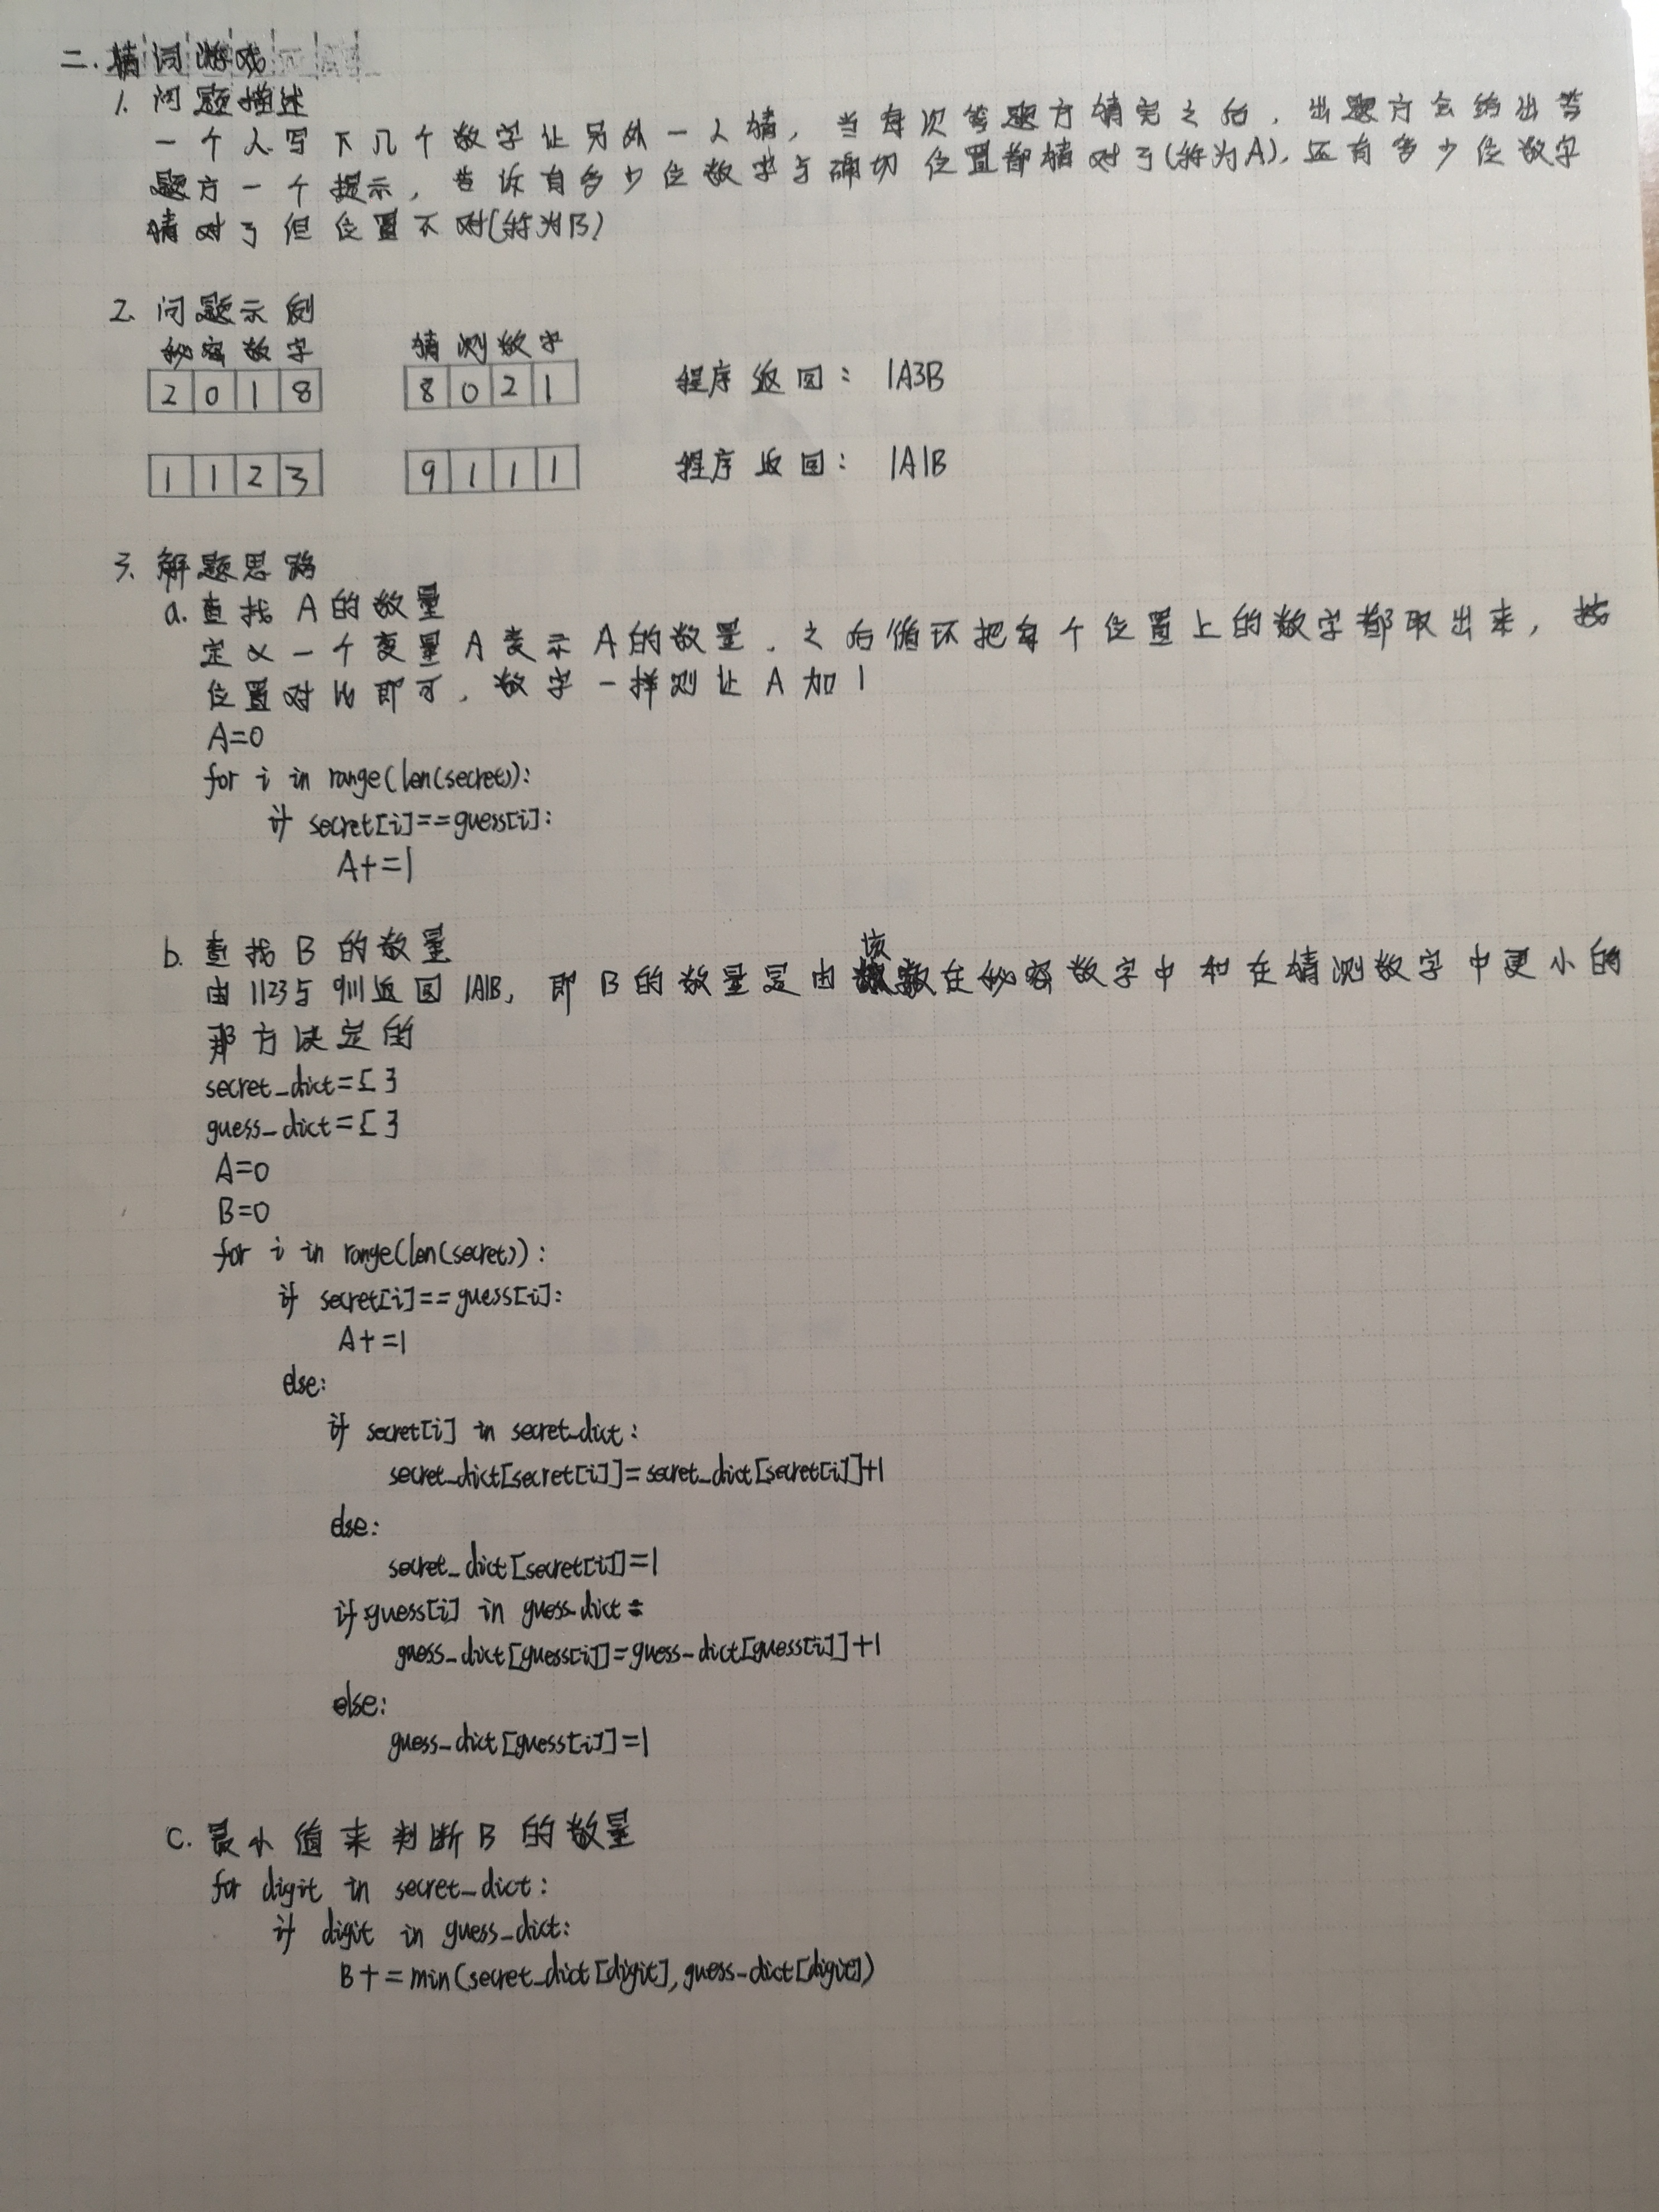 二.猜词游戏
1. 问题描述
一个人写下几个数字让另外一人猜,当每次答题方猜完之后,出题方会给出答
题方一个提示,告诉有多少位数字与确切位置都猜对了(称为A),还有多少位数字
猜对了但位置不对(称为B)
2. 问题示例
秘密数字 猜测数字
2 0 1 8 8 0 2 1 程序返回: 1A3B
1 1 2 3 9 1 1 1 程序返回: 1A1B
3. 解题思路
a. 查找A的数量
定义一个变量A表示A的数量,之后循环把每个位置上的数字都取出来,按
位置对比即可,数字一样则让A加1
A=0
for i in range(len(secret)):
if secret[i]==guess[i]:
A+=1
b. 查找B的数量
由1123与9111返回1A1B,即B的数量是由该数在秘密数字中和在猜测数字中更小的
那方决定的
secret_dict={}
guess_dict={}
A=0
B=0
for i in range(len(secret)):
if secret[i]==guess[i]:
A+=1
else:
if secret[i] in secret_dict:
secret_dict[secret[i]]=secret_dict[secret[i]]+1
else:
secret_dict[secret[i]]=1
if guess[i] in guess_dict:
guess_dict[guess[i]]=guess_dict[guess[i]]+1
else:
guess_dict[guess[i]]=1
c. 最小值来判断B的数量
for digit in secret_dict:
if digit in guess_dict:
B+=min(secret_dict[digit],guess_dict[digit])